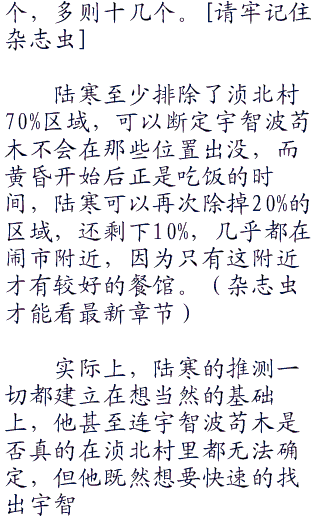 个，多则十几个。[请牢记住
杂志虫]
陆寒至少排除了浈北村
70%区域，可以断定宇智波苟
木不会在那些位置出没，而
黄昏开始后正是吃饭的时
间，陆寒可以再次除掉20%的
区域，还剩下10%，几乎都在
闹市附近，因为只有这附近
才有较好的餐馆。（杂志虫
才能看最新章节）
实际上，陆寒的推测一
切都建立在想当然的基础
上，他甚至连宇智波苟木是
否真的在浈北村里都无法确
定，但他既然想要快速的找
出宇智